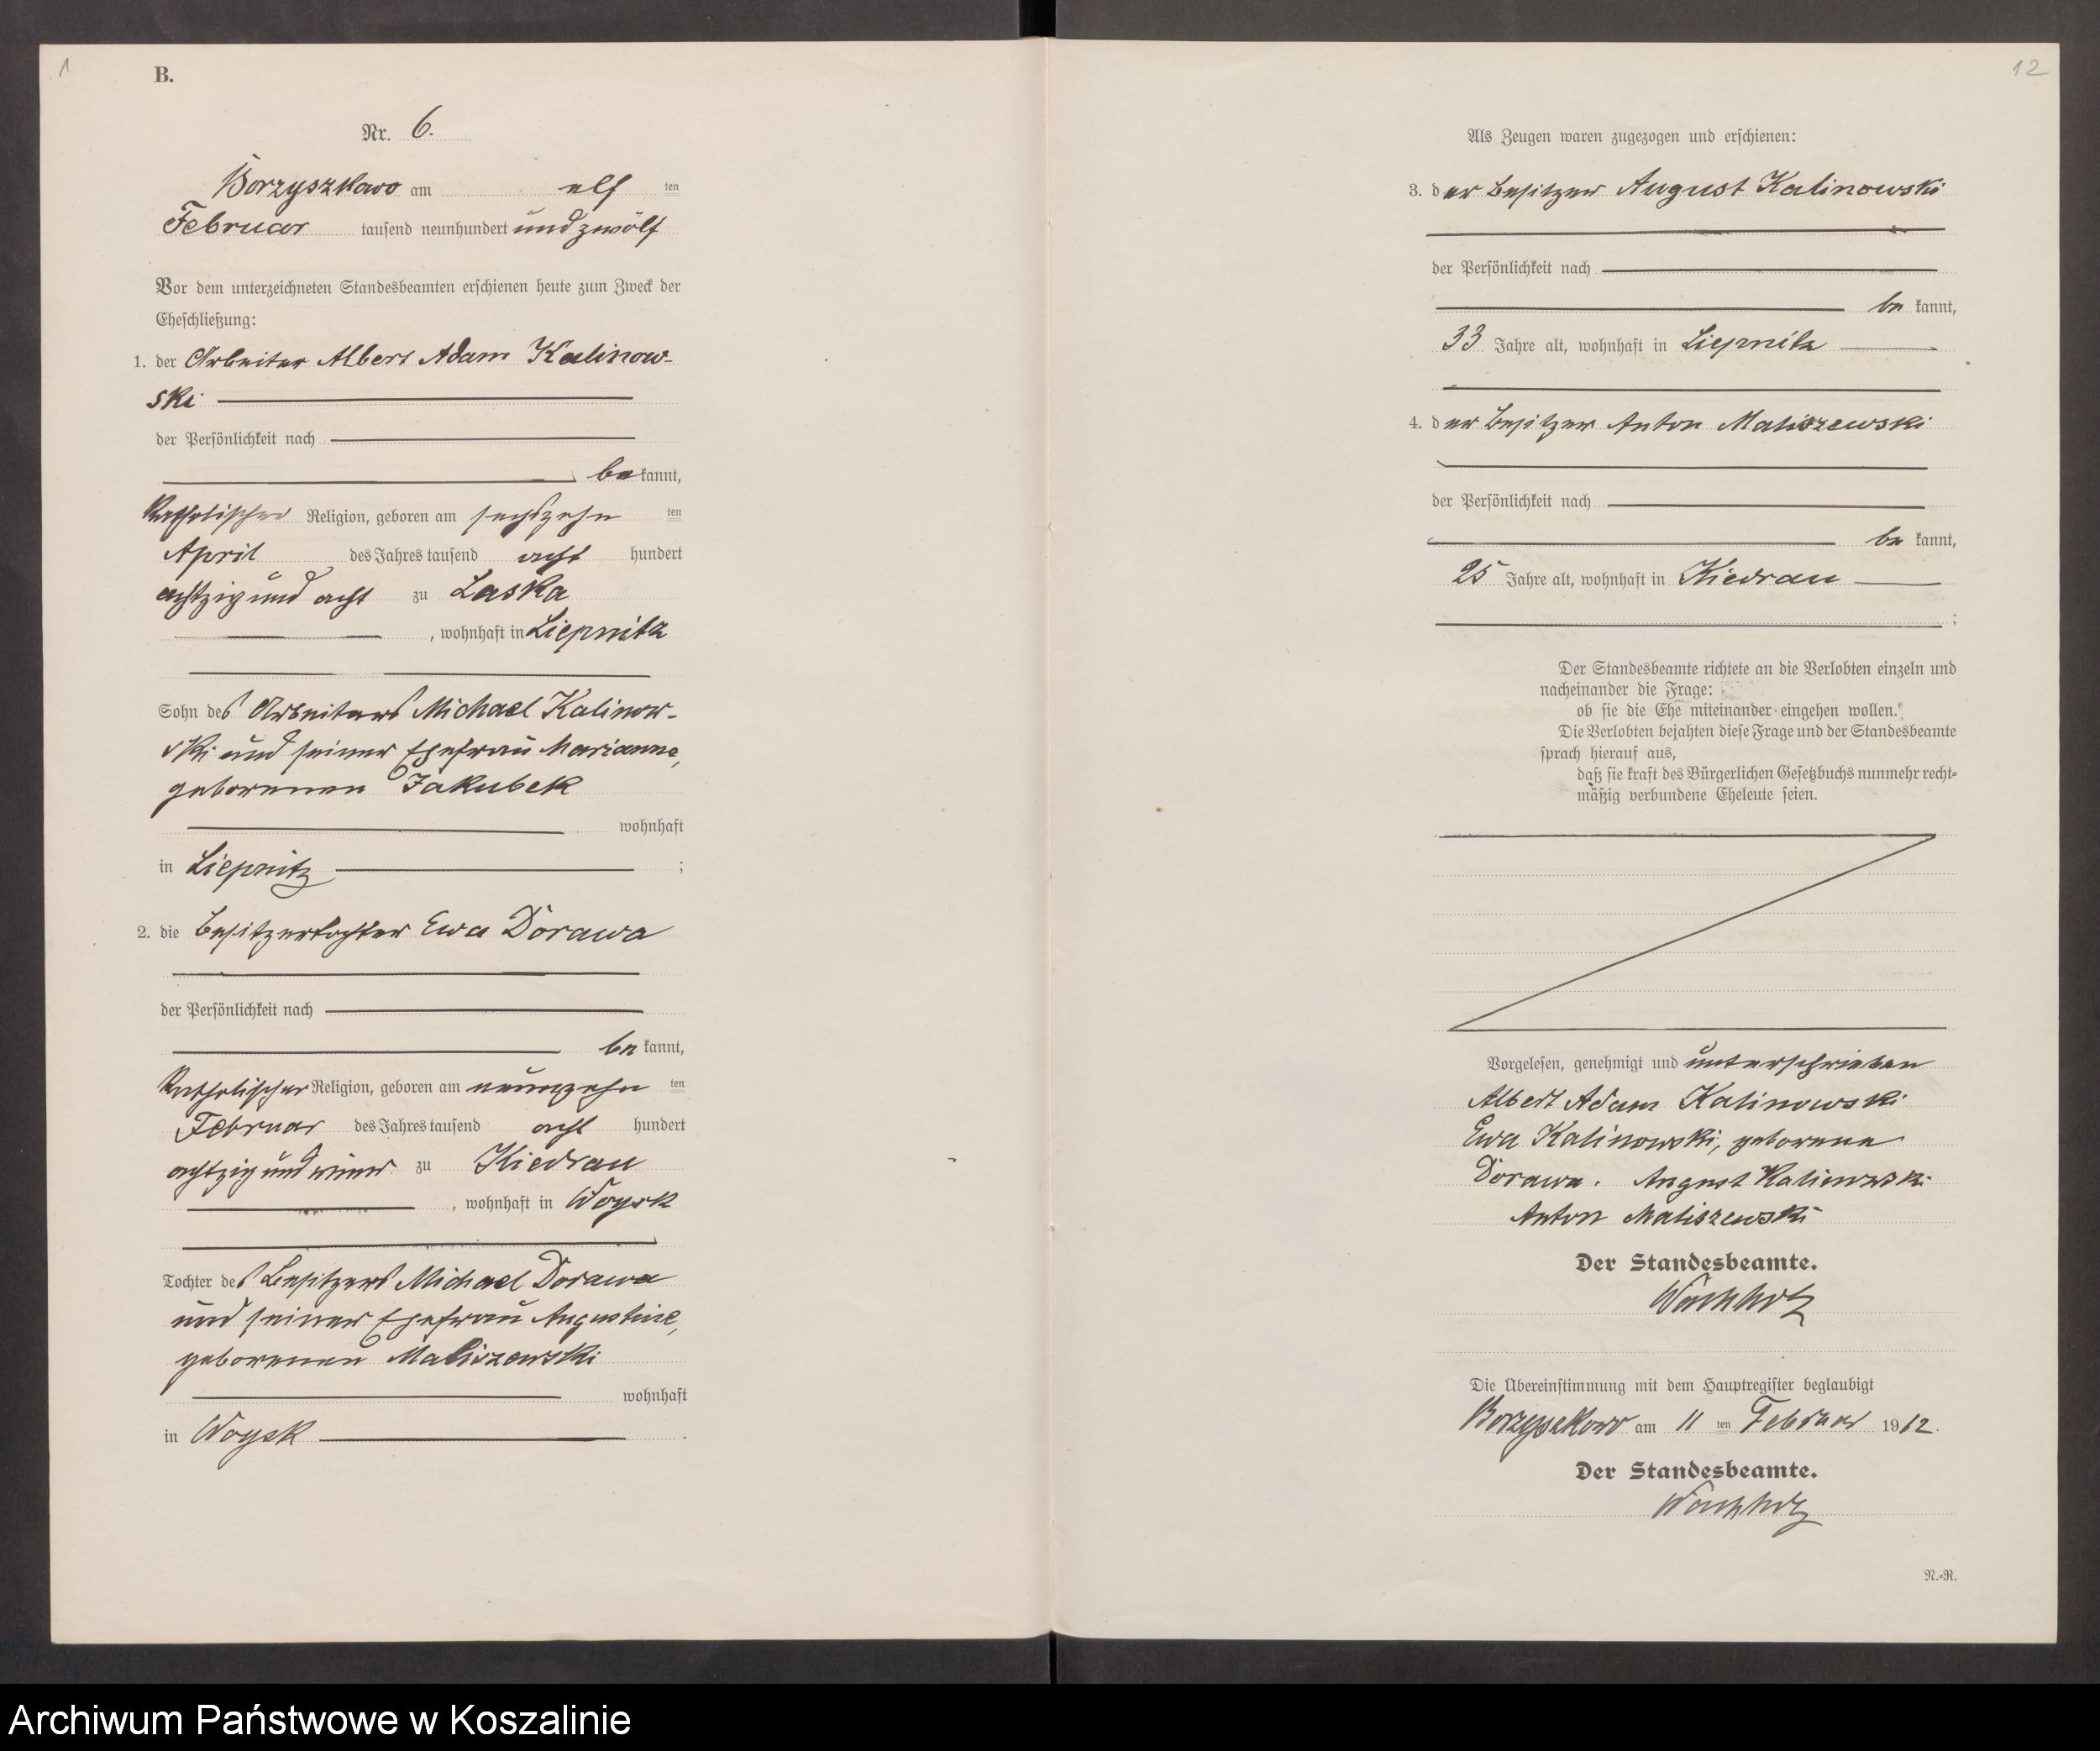 1
B.
Nr. 6.
Borzyszkowo am elf ten
Februar tausend neunhundert und zwölf
Vor dem unterzeichneten Standesbeamten erschienen heute zum Zweck der
Eheschließung:
1. der Arbeiter Albert Adam Kalinow-
ski
der Persönlichkeit nach
be kannt,
katholischer Religion, geboren am sechszehn ten
April des Jahres tausend acht hundert
achtzig und acht zu Laska
, wohnhaft in Liepnitz
Sohn des Arbeiters Michael Kalinow-
ski und seiner Ehefrau Marianna,
geborenen Jakubek
wohnhaft
in Liepnitz ;
2. die Besitzertochter Ewa Dorawa
der Persönlichkeit nach
be kannt,
katholischer Religion, geboren am neunzehn ten
Februar des Jahres tausend acht hundert
achtzig und neun zu Kiedrau
, wohnhaft in Woysk
Tochter des Besitzers Michael Dorawa
und seiner Ehefrau Augustine,
geborenen Maliszewski
wohnhaft
in Woysk .
12
Als Zeugen waren zugezogen und erschienen:
3. der Besitzer August Kalinowski
der Persönlichkeit nach
be kannt,
33 Jahre alt, wohnhaft in Liepnitz
4. der Besitzer Anton Maliszewski
der Persönlichkeit nach
be kannt,
25 Jahre alt, wohnhaft in Kiedrau
;
Der Standesbeamte richtete an die Verlobten einzeln und
nacheinander die Frage:
ob sie die Ehe miteinander eingehen wollen.
Die Verlobten bejahten diese Frage und der Standesbeamte
sprach hierauf aus,
daß sie kraft des Bürgerlichen Gesetzbuchs nunmehr recht-
mäßig verbundene Eheleute seien.
Vorgelesen, genehmigt und unterschrieben
Albert Adam Kalinowski
Ewa Kalinowski, geborene
Dorawa. August Kalinowski
Anton Maliszewski
Der Standesbeamte.
Wachholz
Die Übereinstimmung mit dem Hauptregister beglaubigt
Borzyszkowo am 11 ten Februar 1912.
Der Standesbeamte.
Wachholz
N.-R.
Archiwum Państwowe w Koszalinie